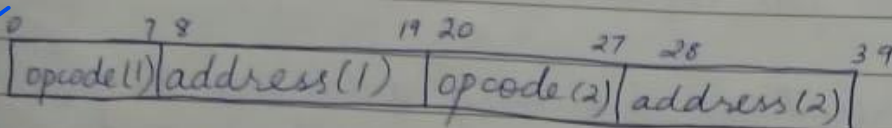 0 7 8 19 20 27 28 39
opcode(1) address(1) opcode(2) address(2)